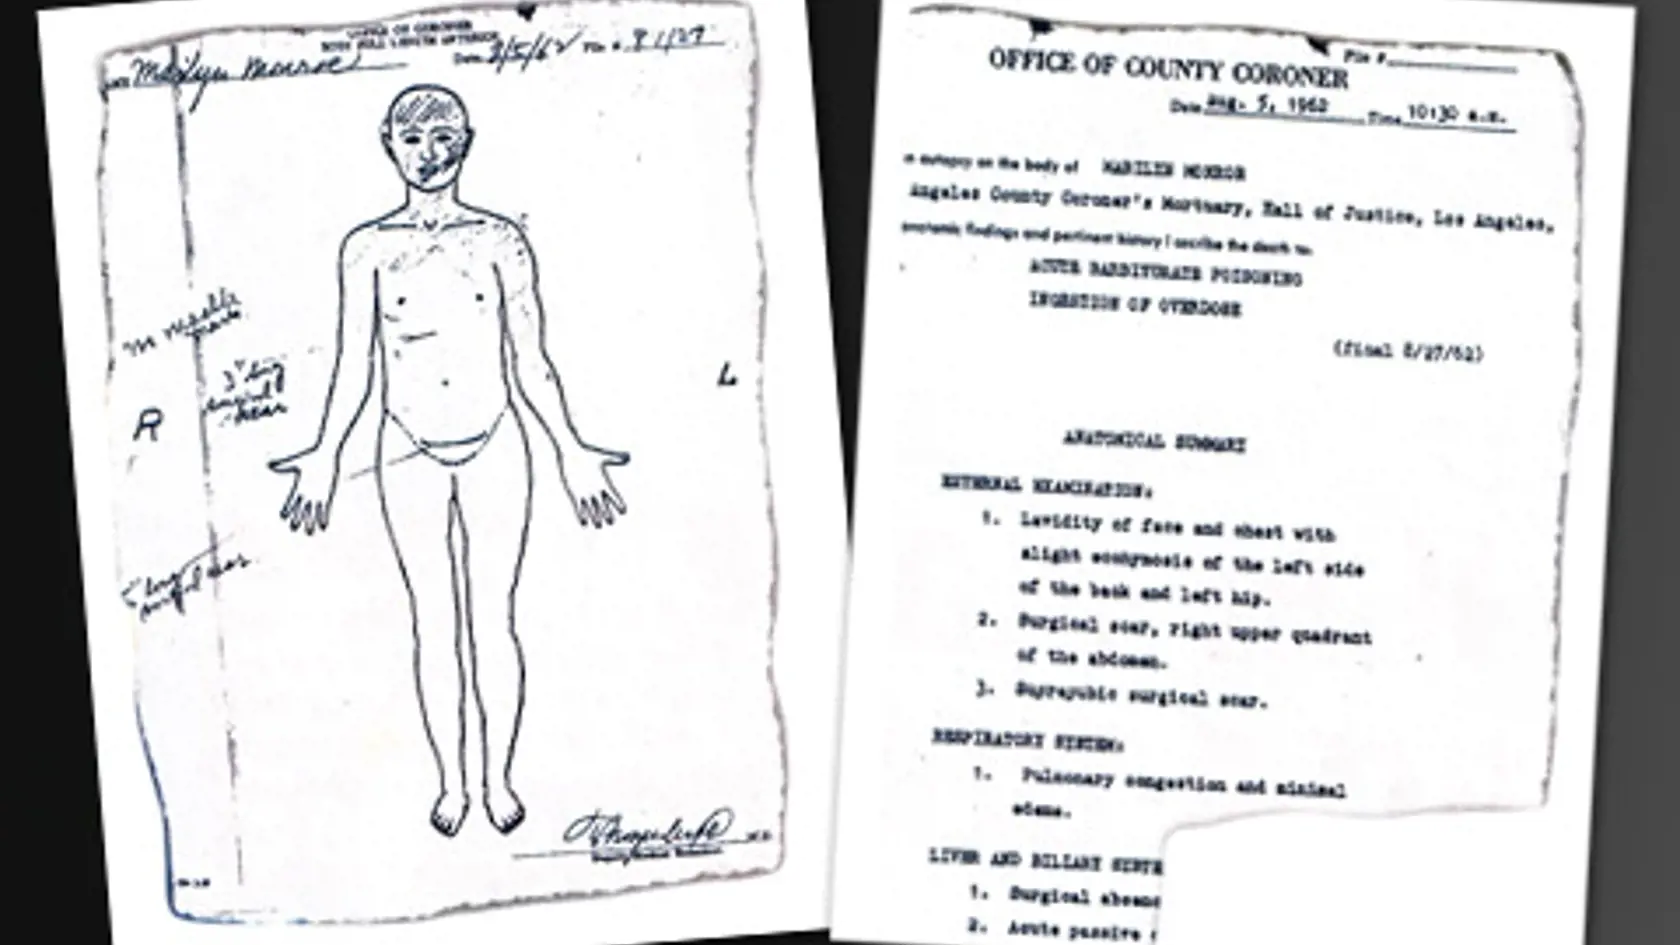 OFFICE OF CORONER
Marilyn Monroe Date 8/5/62 File # 81127
no needle marks
3" long surgical scar
R
L
5" long surgical scar
M.D.
File #
OFFICE OF COUNTY CORONER
Date Aug. 5, 1962 Time 10:30 a.m.
autopsy on the body of MARILYN MONROE
Angeles County Coroner's Mortuary, Hall of Justice, Los Angeles,
anatomic findings and pertinent history I ascribe the death to:
ACUTE BARBITURATE POISONING
INGESTION OF OVERDOSE
(final 8/27/62)
ANATOMICAL SUMMARY
EXTERNAL EXAMINATION:
1. Lividity of face and chest with
slight ecchymosis of the left side
of the back and left hip.
2. Surgical scar, right upper quadrant
of the abdomen.
3. Suprapubic surgical scar.
RESPIRATORY SYSTEM:
1. Pulmonary congestion and minimal
edema.
LIVER AND BILIARY SYSTE
1. Surgical absenc
2. Acute passive